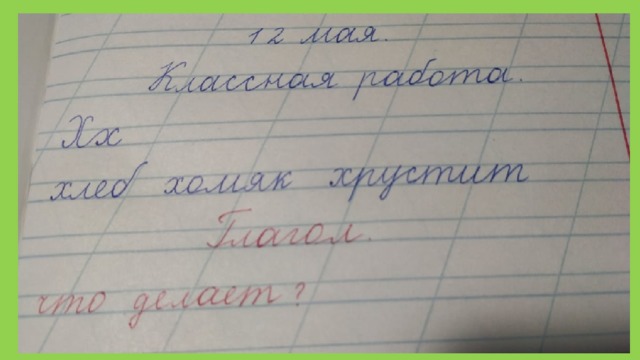 12 мая.
Классная работа.
Хх
хлеб хомяк хрустит
Глагол.
что делает?